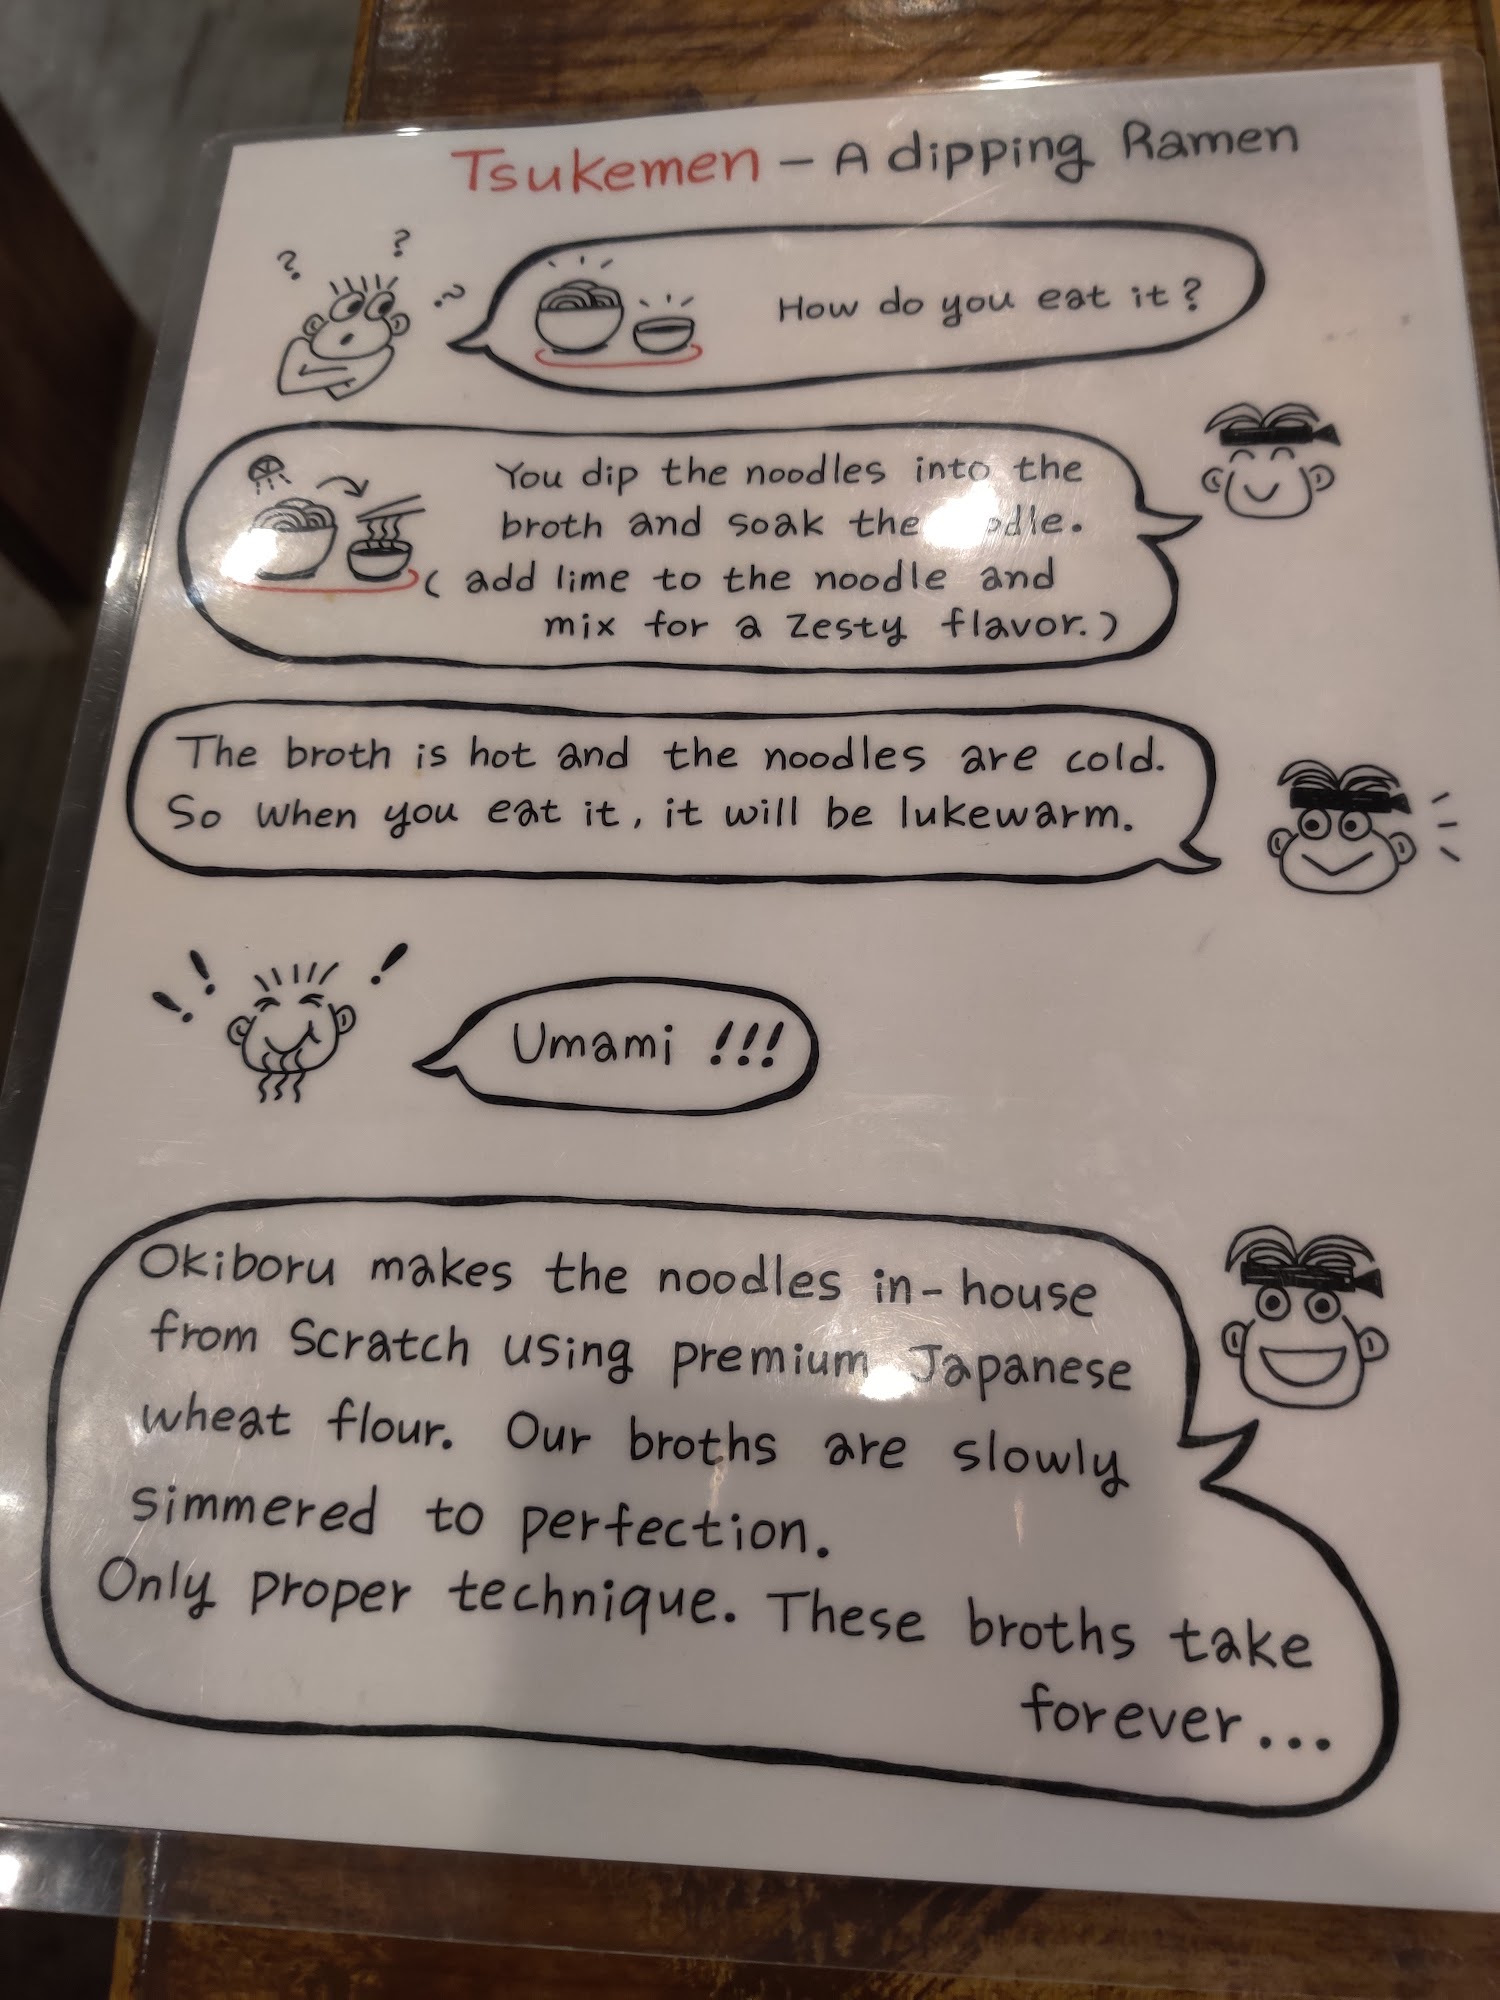 Tsukemen - A dipping Ramen
? ? ?
How do you eat it?
You dip the noodles into the
broth and soak the
( add lime to the noodle and
mix for a zesty flavor.)
The broth is hot and the noodles are cold.
So when you eat it, it will be lukewarm.
! ! !
Umami !!!
Okiboru makes the noodles in-house
from scratch using premium Japanese
wheat flour. Our broths are slowly
simmered to perfection.
Only proper technique. These broths take
forever...